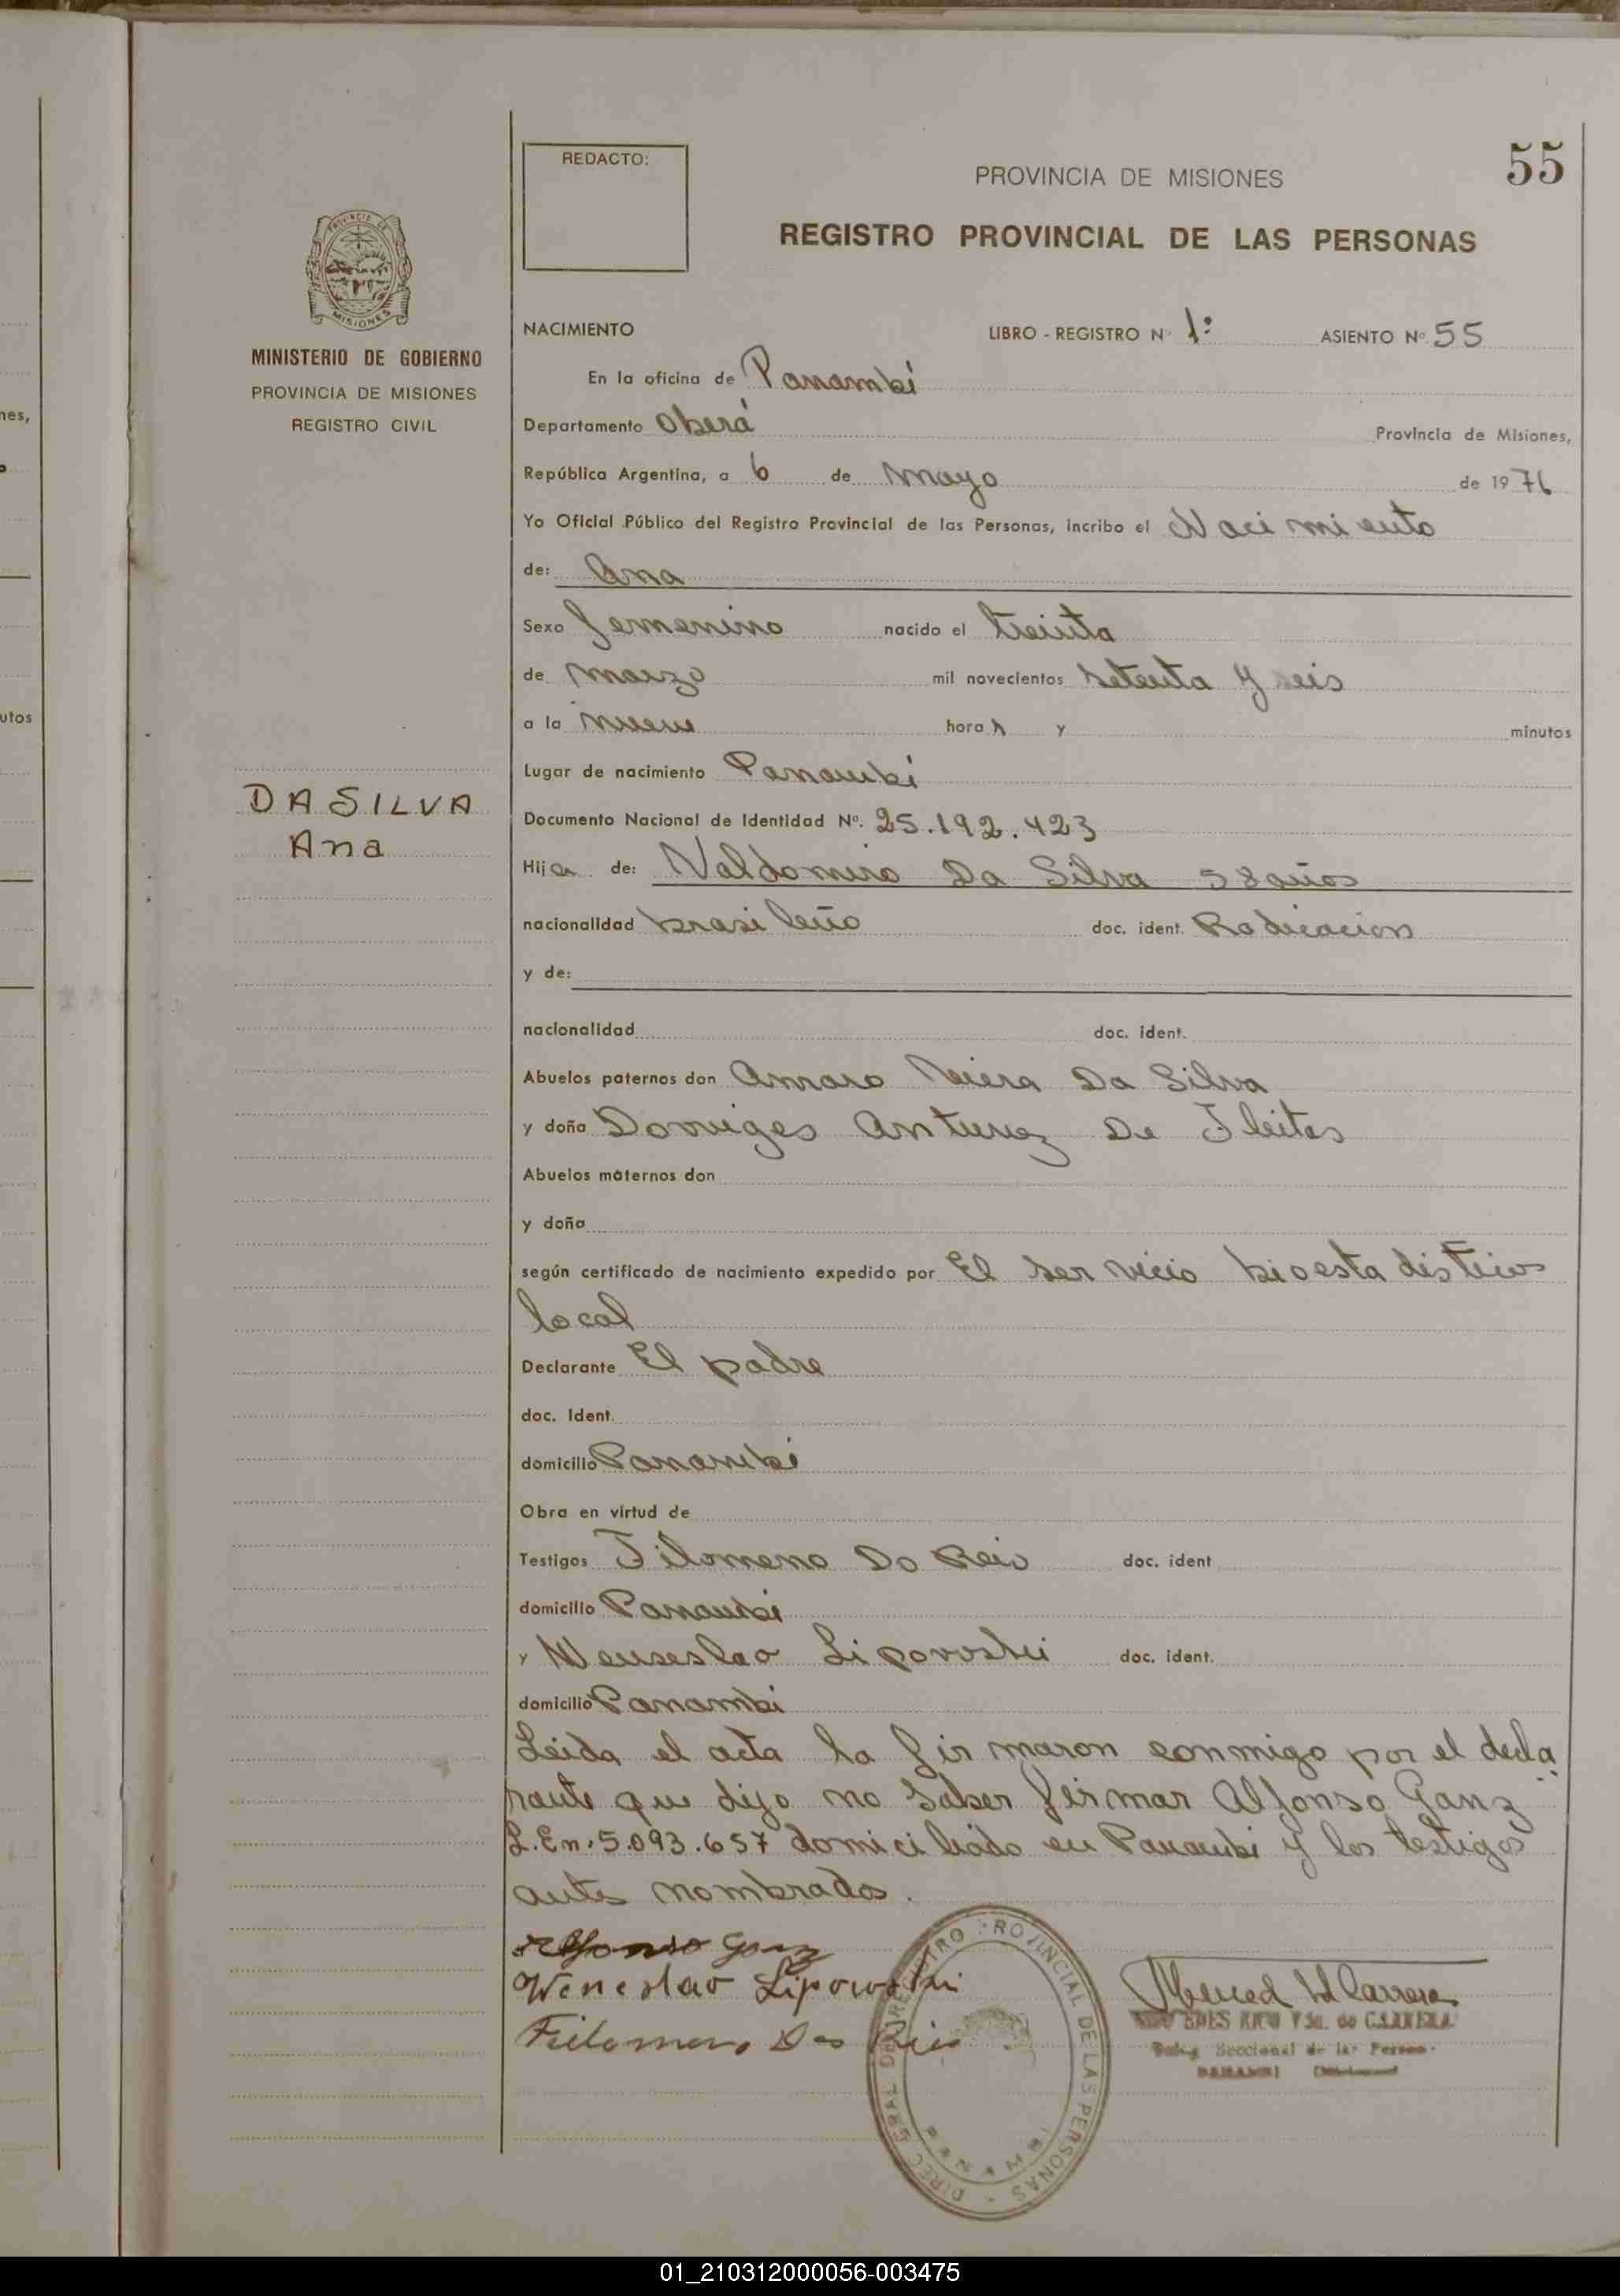 55
REDACTO:
PROVINCIA DE MISIONES
REGISTRO PROVINCIAL DE LAS PERSONAS
PROVINCIA DE
MISIONES
MINISTERIO DE GOBIERNO
PROVINCIA DE MISIONES
REGISTRO CIVIL
DA SILVA
Ana
NACIMIENTO LIBRO - REGISTRO Nº 1: ASIENTO Nº 55
En la oficina de Panambí
Departamento Oberá Provincia de Misiones,
República Argentina, a 6 de Mayo de 1976
Yo Oficial Público del Registro Provincial de las Personas, incribo el Nacimiento
de: Ana
Sexo femenino nacido el treinta
de marzo mil novecientos setenta y seis
a la nueve hora s y minutos
Lugar de nacimiento Panambí
Documento Nacional de Identidad Nº. 25.192.423
Hija de: Valdomiro Da Silva 58 años
nacionalidad brasileño doc. ident. Radicacion
y de:
nacionalidad doc. ident.
Abuelos paternos don Amaro Vieira Da Silva
y doña Domiges Antunez De Fleitas
Abuelos maternos don
y doña
según certificado de nacimiento expedido por El servicio bioestadistico
local
Declarante El padre
doc. Ident.
domicilio Panambí
Obra en virtud de
Testigos Filomeno Do Reis doc. ident
domicilio Panambí
y Wenseslao Lipovoski doc. ident.
domicilio Panambí
Leida el acta la firmaron conmigo por el decla
rante que dijo no saber firmar Alfonso Ganz
L.En. 5.093.657 domiciliado en Panambi y los testigos
antes nombrados.
Alfonso Ganz
Weneslao Lipowoski
Filomeno Dos Reis
DIREC. GRAL. DEL REGISTRO PROVINCIAL DE LAS PERSONAS -
PANAMBI
RICO Vda. de CARRERA
Seccional de las Person.
PANAMBI
nes,
utos
01_210312000056-003475